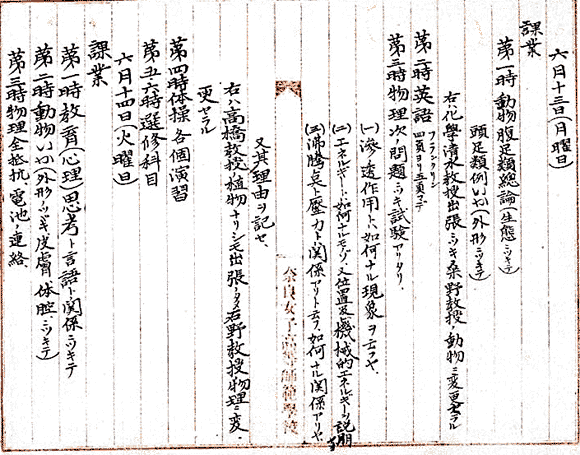 六月十三日(月曜日)
課業
第一時 動物 腹足類総論(生態ニツキテ)
頭足類例いか(外形ニツキテ)
右ハ化學清水教授出張ニツキ桑野教授ノ動物ニ変更セラル
第二時 英語 フランクリン 四頁ヨリ五頁マデ
第三時 物理 次ノ問題ニツキ試験アリタリ、
(一) 滲透作用トハ如何ナル現象ヲ云フヤ、
(二) エネルギートハ如何ナルモノゾ、又位置及機械的エネルギーヲ説明
(三) 沸騰点ト壓力ト関係アリト云フ、如何ナル関係アリヤ
奈良女子高等師範學校
又其理由ヲ記セ、
右ハ高橋教授ノ植物ナリシモ出張ノタメ右野教授ノ物理ニ変
更セラル
第四時 体操 各個演習
第五六時 選修科目
六月十四日(火曜日)
課業
第一時 教育(心理) 思考ト言語ト関係ニツキテ
第二時 動物 いか(外形ノツヅキ皮膚、体腔ニツキテ)
第三時 物理 全抵抗、電池ノ連絡、